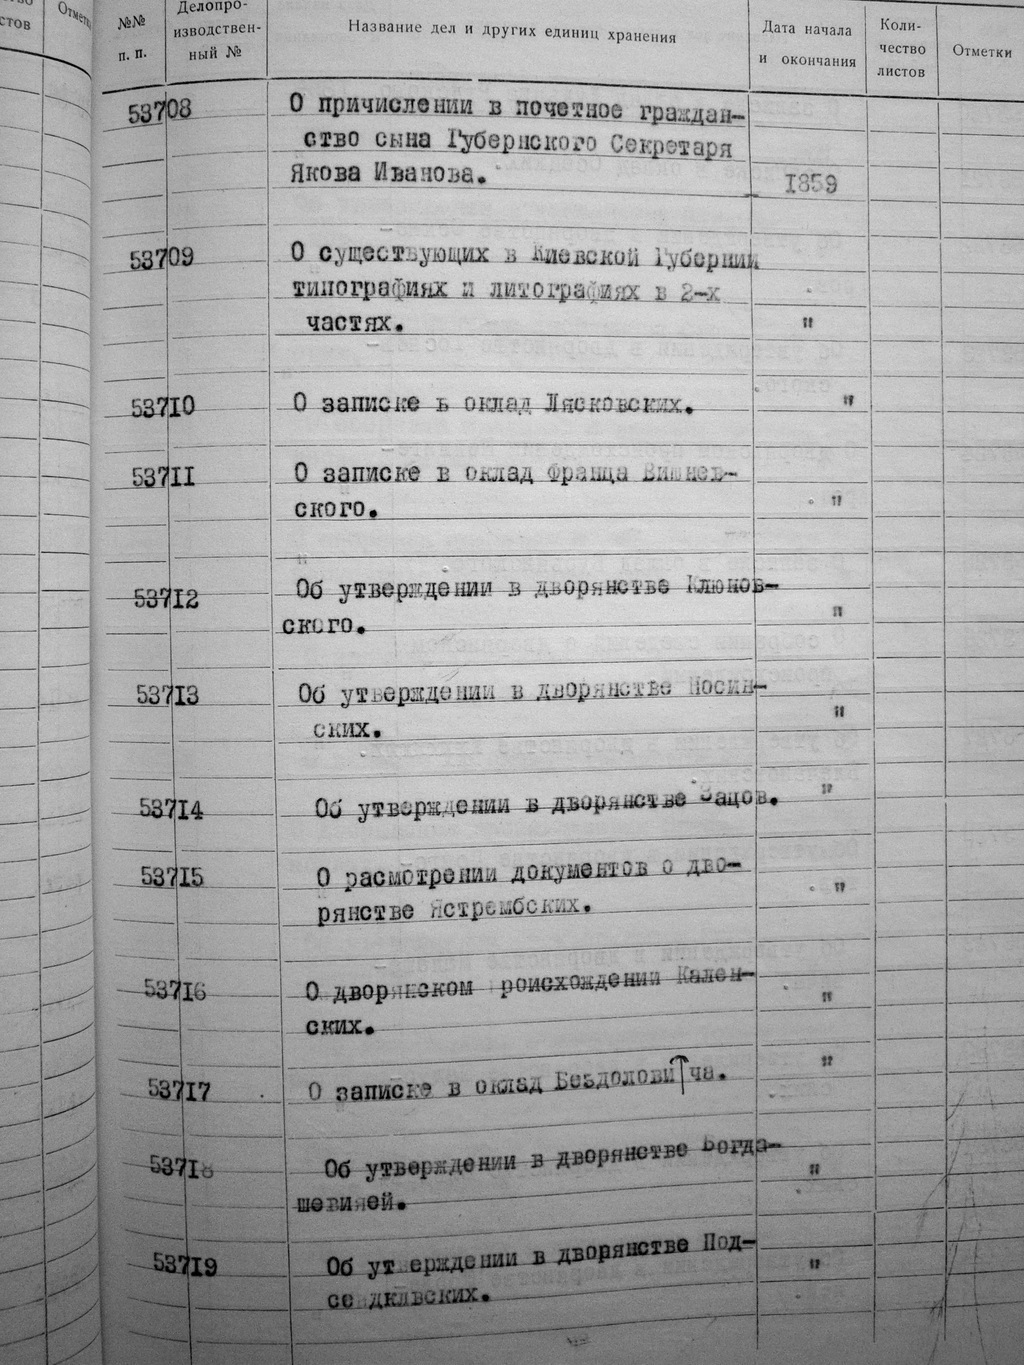 стов
Отметк
№№
п. п.
Делопро-
изводствен-
ный №
Название дел и других единиц хранения
Дата начала
и окончания
Коли-
чество
листов
Отметки
53708 О причислении в почетное граждан-
ство сына Губернского Секретаря
Якова Иванова. 1859
53709 О существующих в Киевской Губернии
типографиях и литографиях в 2-х
частях. "
53710 О записке в оклад Лясковских. "
53711 О записке в оклад Франца Вишнев-
ского. "
53712 Об утверждении в дворянстве
ского. "
53713 Об утверждении в дворянстве Носин-
ских. "
53714 Об утверждении в дворянстве "
53715 О расмотрении документов о дво-
рянстве Ястрембских. "
53716 О дворянском роисхождении Кален-
ских. "
53717 О записке в оклад Бездолови ча. "
53718 Об утверждении в дворянстве Богда-
"
53719 Об ут ерждении в дворянстве Под-
"